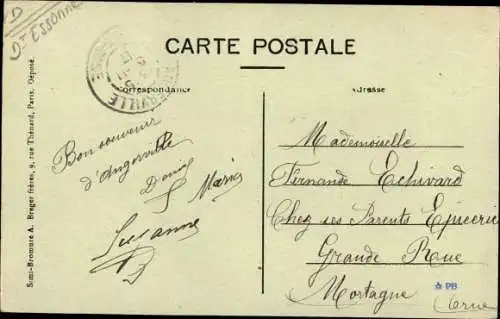 D
Dt Essonne
CARTE POSTALE
Correspondance
Adresse
ERVILLE
Bon souvenir
d'Angerville
Daniel
Marie
Suzanne
Mademoiselle
Fernande Echivard
Chez ses Parents Epicerie
Grande Rue
Mortagne
Orne
PB
Semi-Bromure A. Breger frères, 9, rue Thénard, Paris. Déposé.